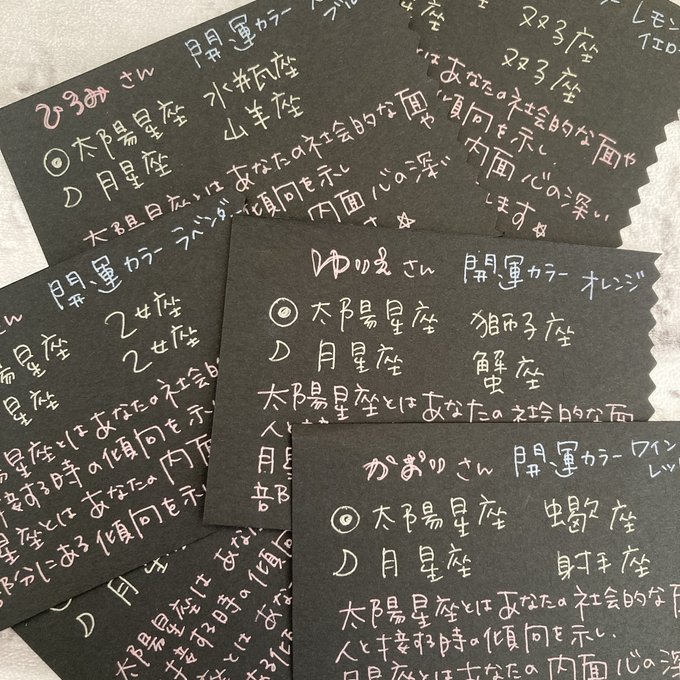 ひろみさん 開運カラー
太陽星座 水瓶座
月星座 山羊座
太陽星座とはあなたの社会的な面や
傾向を示し
内面 心の深い
レモン
イエロー
双子座
双子座
はあなたの社会的な面や
傾向を示し
内面 心の深い
します☆
さん 開運カラー ラベンダー
陽星座 乙女座
星座 乙女座
陽星座とはあなたの社会的
接する時の傾向を示し
星座とはあなたの内面
部分にある傾向を示し
ゆりえさん 開運カラー オレンジ
太陽星座 獅子座
月星座 蟹座
太陽星座とはあなたの社会的な面
人と
月星
部
かおりさん 開運カラー ワイン
レッ
太陽星座 蠍座
月星座 射手座
太陽星座とはあなたの社会的な面
人と接する時の傾向を示し
月星座とはあなたの内面 心の深
月星
太陽星座は あな
接する時の傾
とは あ
ある傾